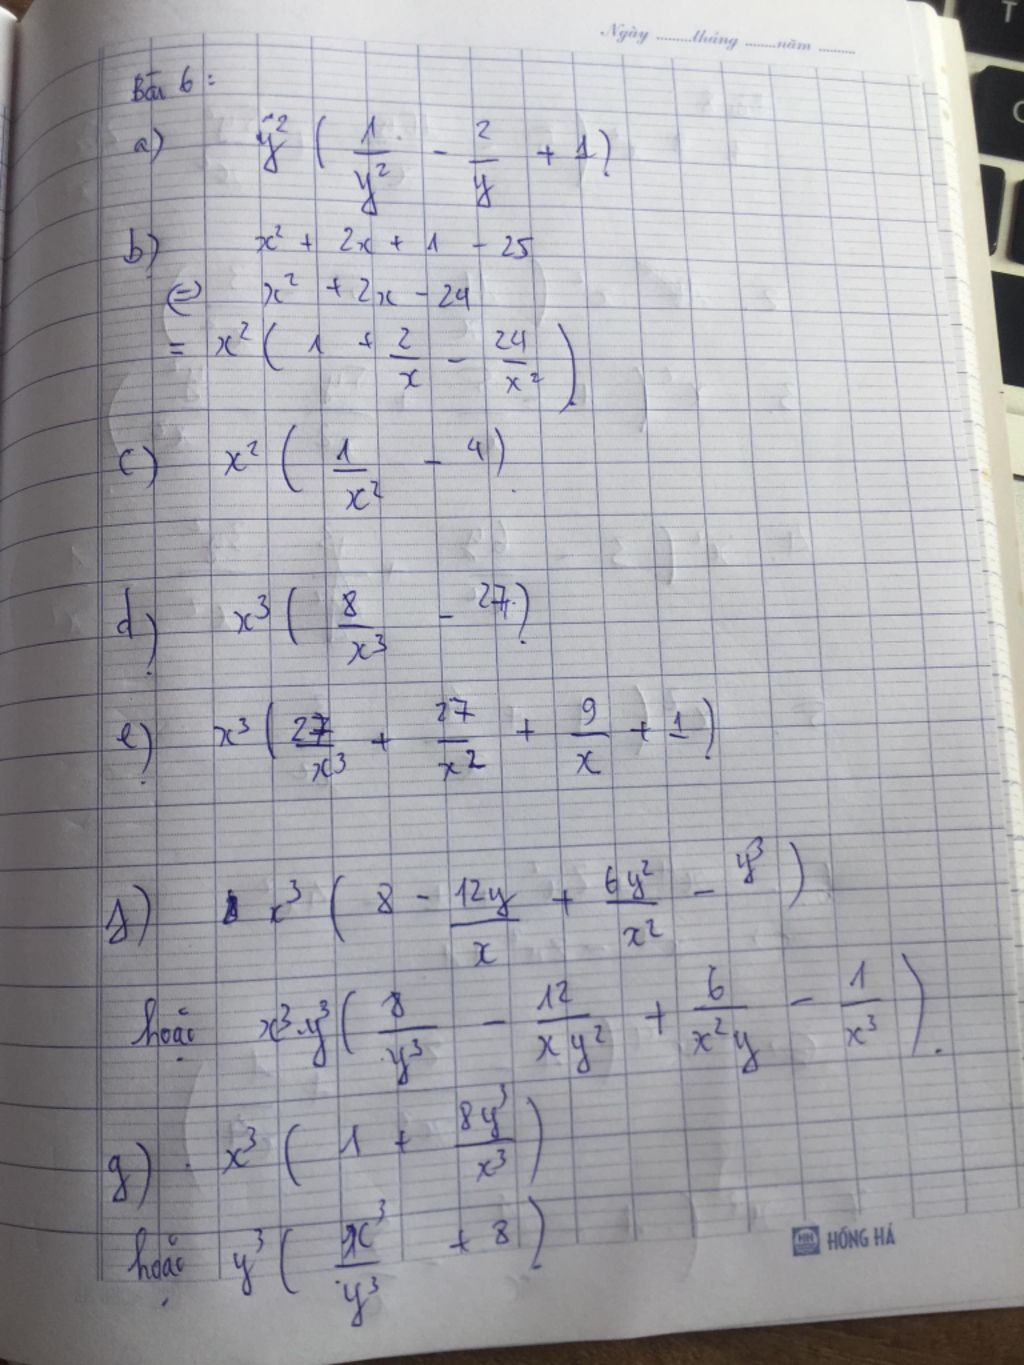 Ngày ........tháng .......năm ........
Bài 6 :
a) y² ( 1/y² - 2/y + 1 )
b) x² + 2x + 1 - 25
(=) x² + 2x - 24
= x² ( 1 + 2/x - 24/x² )
c) x² ( 1/x² - 4 )
d) x³ ( 8/x³ - 27 )
e) x³ ( 27/x³ + 27/x² + 9/x + 1 )
f) x³ ( 8 - 12y/x + 6y²/x² - y³ )
hoặc x³.y³ ( 8/y³ - 12/xy² + 6/x²y - 1/x³ ).
g) x³ ( 1 + 8y³/x³ )
hoặc y³ ( x³/y³ + 8 )
HH HỒNG HÀ